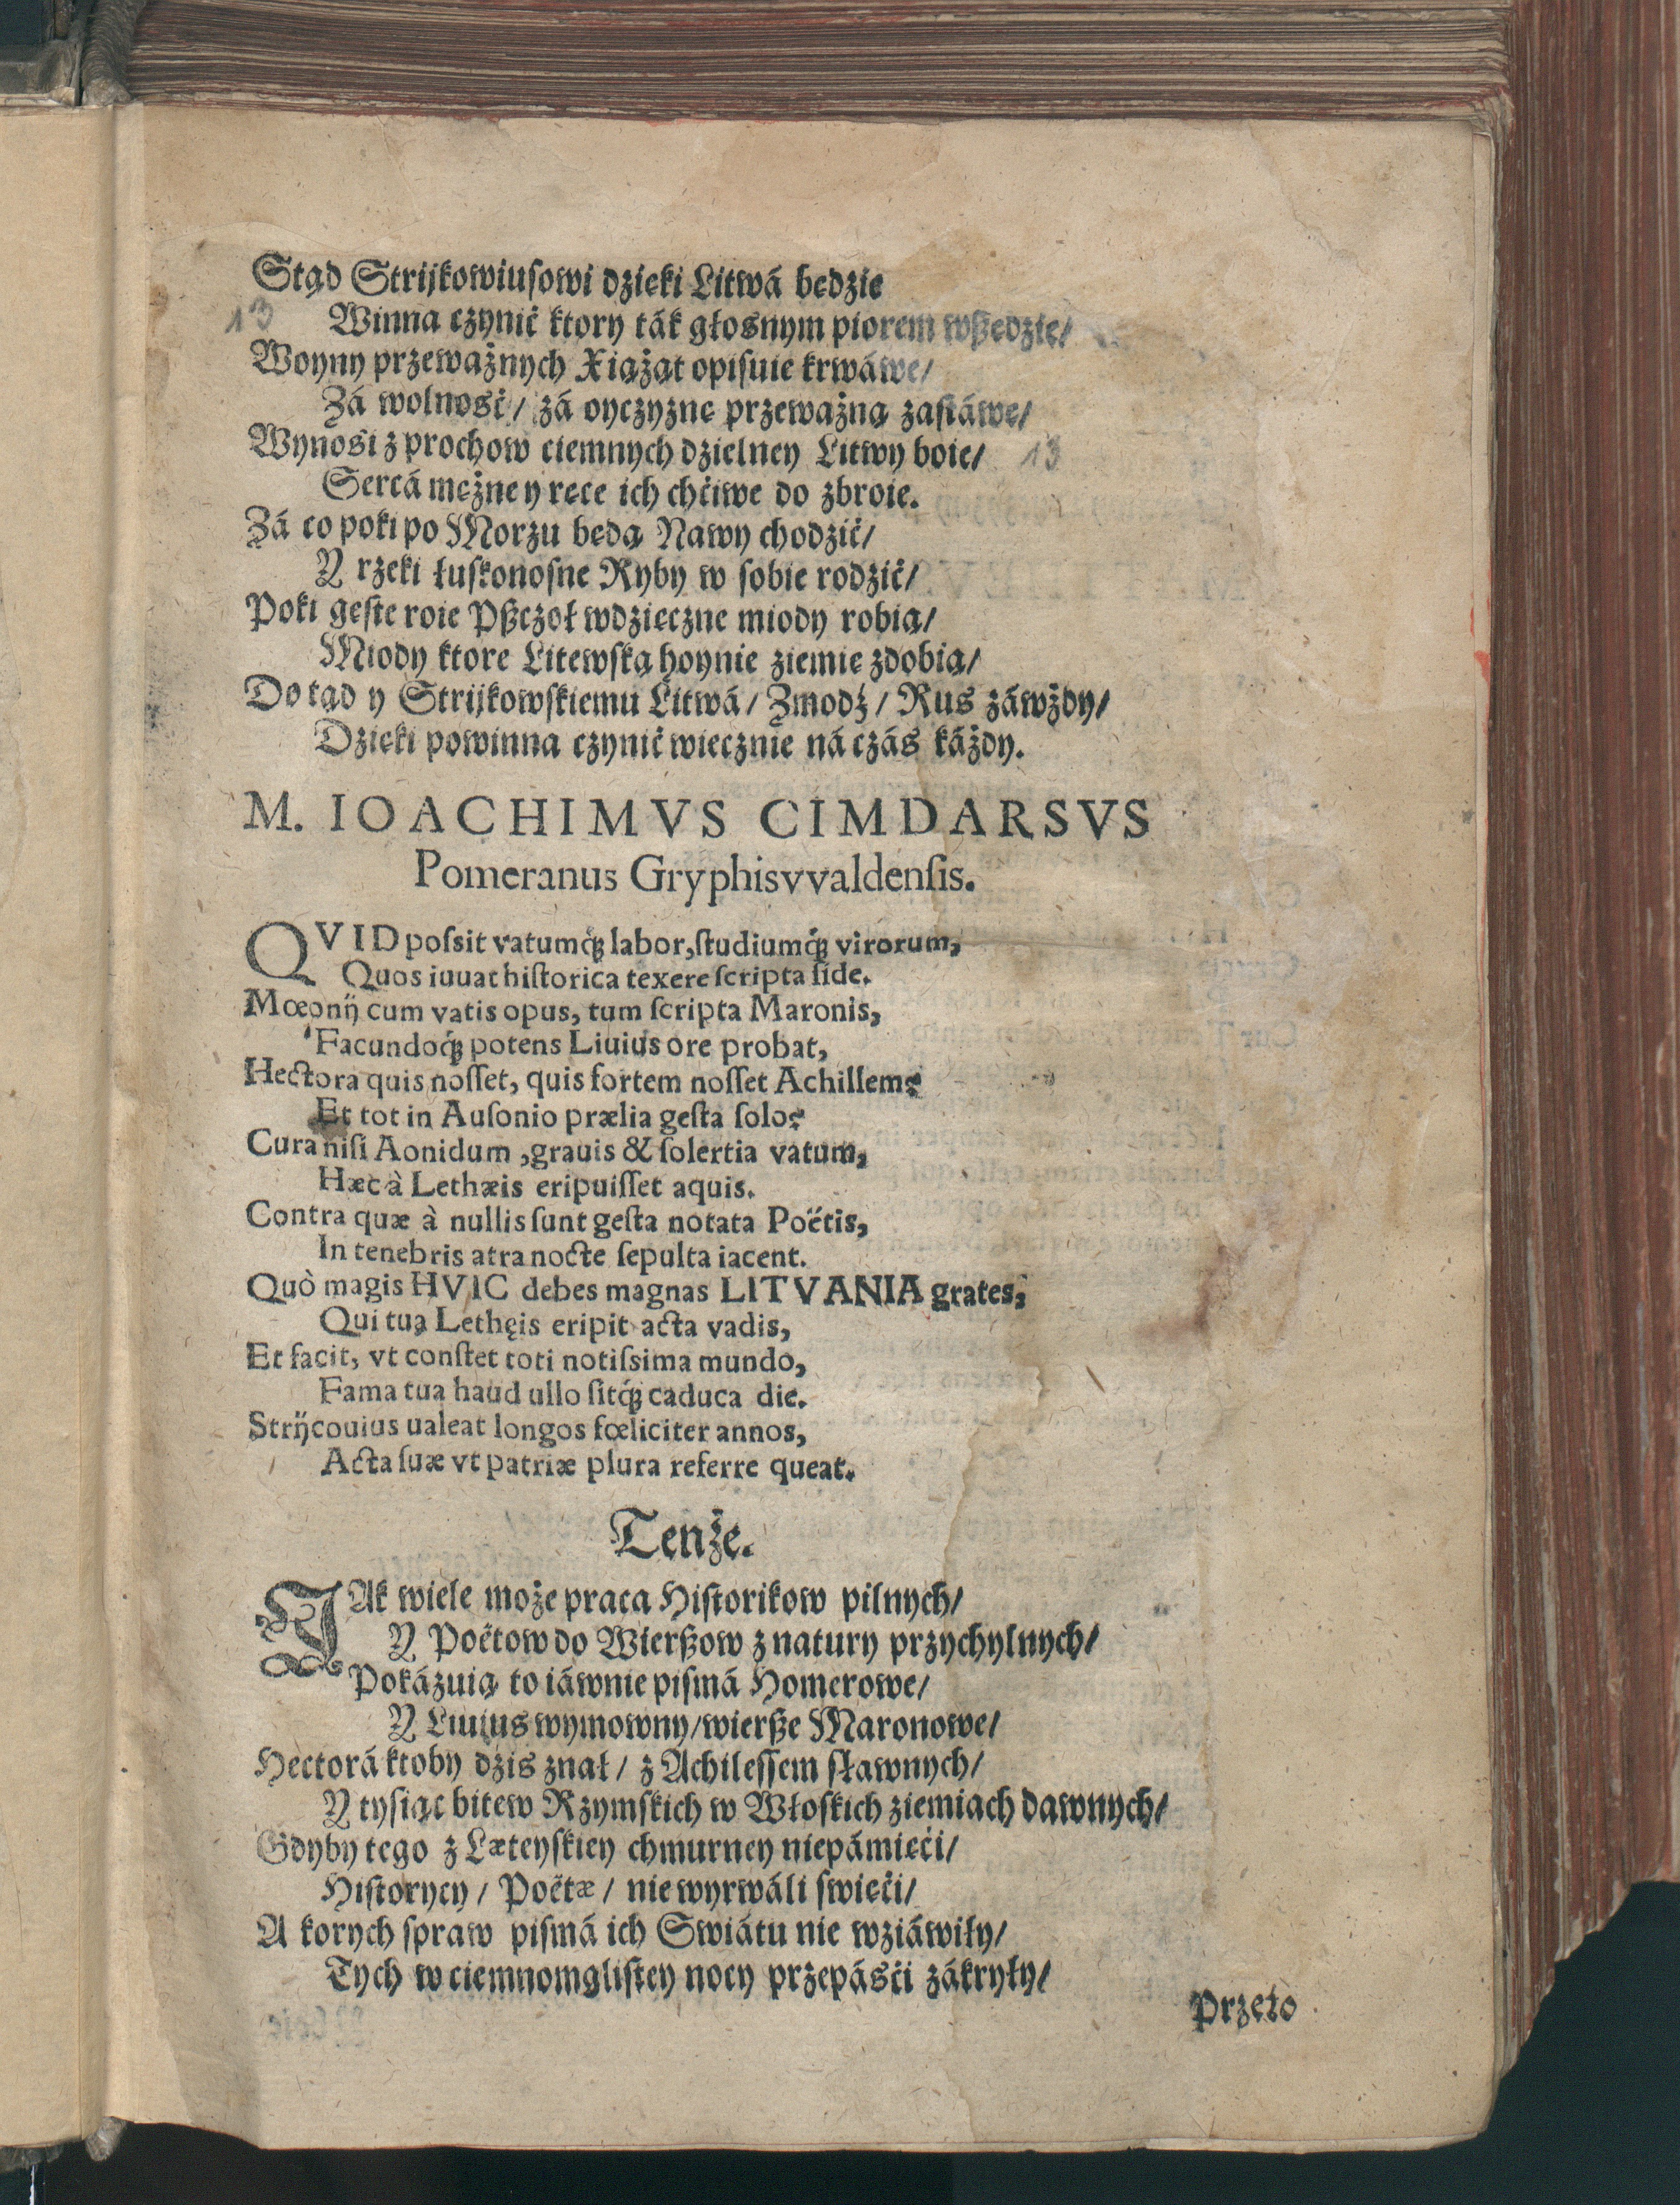 Stąd Strijkowiusowi dzięki Litwá będzie
13 Winna czynić ktory ták głosnym piorem wßędzie/
Woyny przeważnych Xiążąt opisuie krwáwe/
Zá wolność/ zá oyczyznę przeważną zastáwę/
Wynosi z prochow ciemnych dzielney Litwy boie/ 13
Sercá mężne y ręce ich chćiwe do zbroie.
Zá co poki po Morzu będą Nawy chodzić/
Y rzeki łuskonosne Ryby w sobie rodzić/
Poki gęste roie Pßczoł wdzięczne miody robią/
Miody ktore Litewską hoynie ziemię zdobią/
Do tąd y Strijkowskiemu Litwá/ Żmodź/ Rus záwżdy/
Dzięki powinna czynić wiecznie ná czás káżdy.
M. IOACHIMVS CIMDARSVS
Pomeranus Gryphisvvaldensis.
QVID possit vatumq́; labor, studiumq́; virorum,
Quos iuuat historica texere scripta fide.
Mœonij cum vatis opus, tum scripta Maronis,
Facundoq́; potens Liuius ore probat,
Hectora quis nosset, quis fortem nosset Achillem?
Et tot in Ausonio prælia gesta solo?
Cura nisi Aonidum, grauis & solertia vatum,
Hæc à Lethæis eripuisset aquis.
Contra quæ à nullis sunt gesta notata Poëtis,
In tenebris atra nocte sepulta iacent.
Quò magis HVIC debes magnas LITVANIA grates,
Qui tua Lethęis eripit acta vadis,
Et facit, vt constet toti notissima mundo,
Fama tua haud ullo sitq́; caduca die.
Strijcouius ualeat longos fœliciter annos,
Acta suæ vt patriæ plura referre queat.
Tenże.
IAk wiele może praca Historikow pilnych/
Y Poëtow do Wierßow z natury przychylnych/
Pokázuią to iáwnie pismá Homerowe/
Y Liuius wymowny/ wierße Maronowe/
Hectorá ktoby dzis znał/ z Achilessem sławnych/
Y tysiąc bitew Rzymskich w Włoskich ziemiach dawnych/
Gdyby tego z Læteyskiey chmurney niepámięći/
Historycy/ Poëtæ/ nie wyrwáli swięći/
A korych spraw pismá ich Swiátu nie wziáwiły/
Tych w ciemnomglistey nocy przepásći zákryły/
Przeto